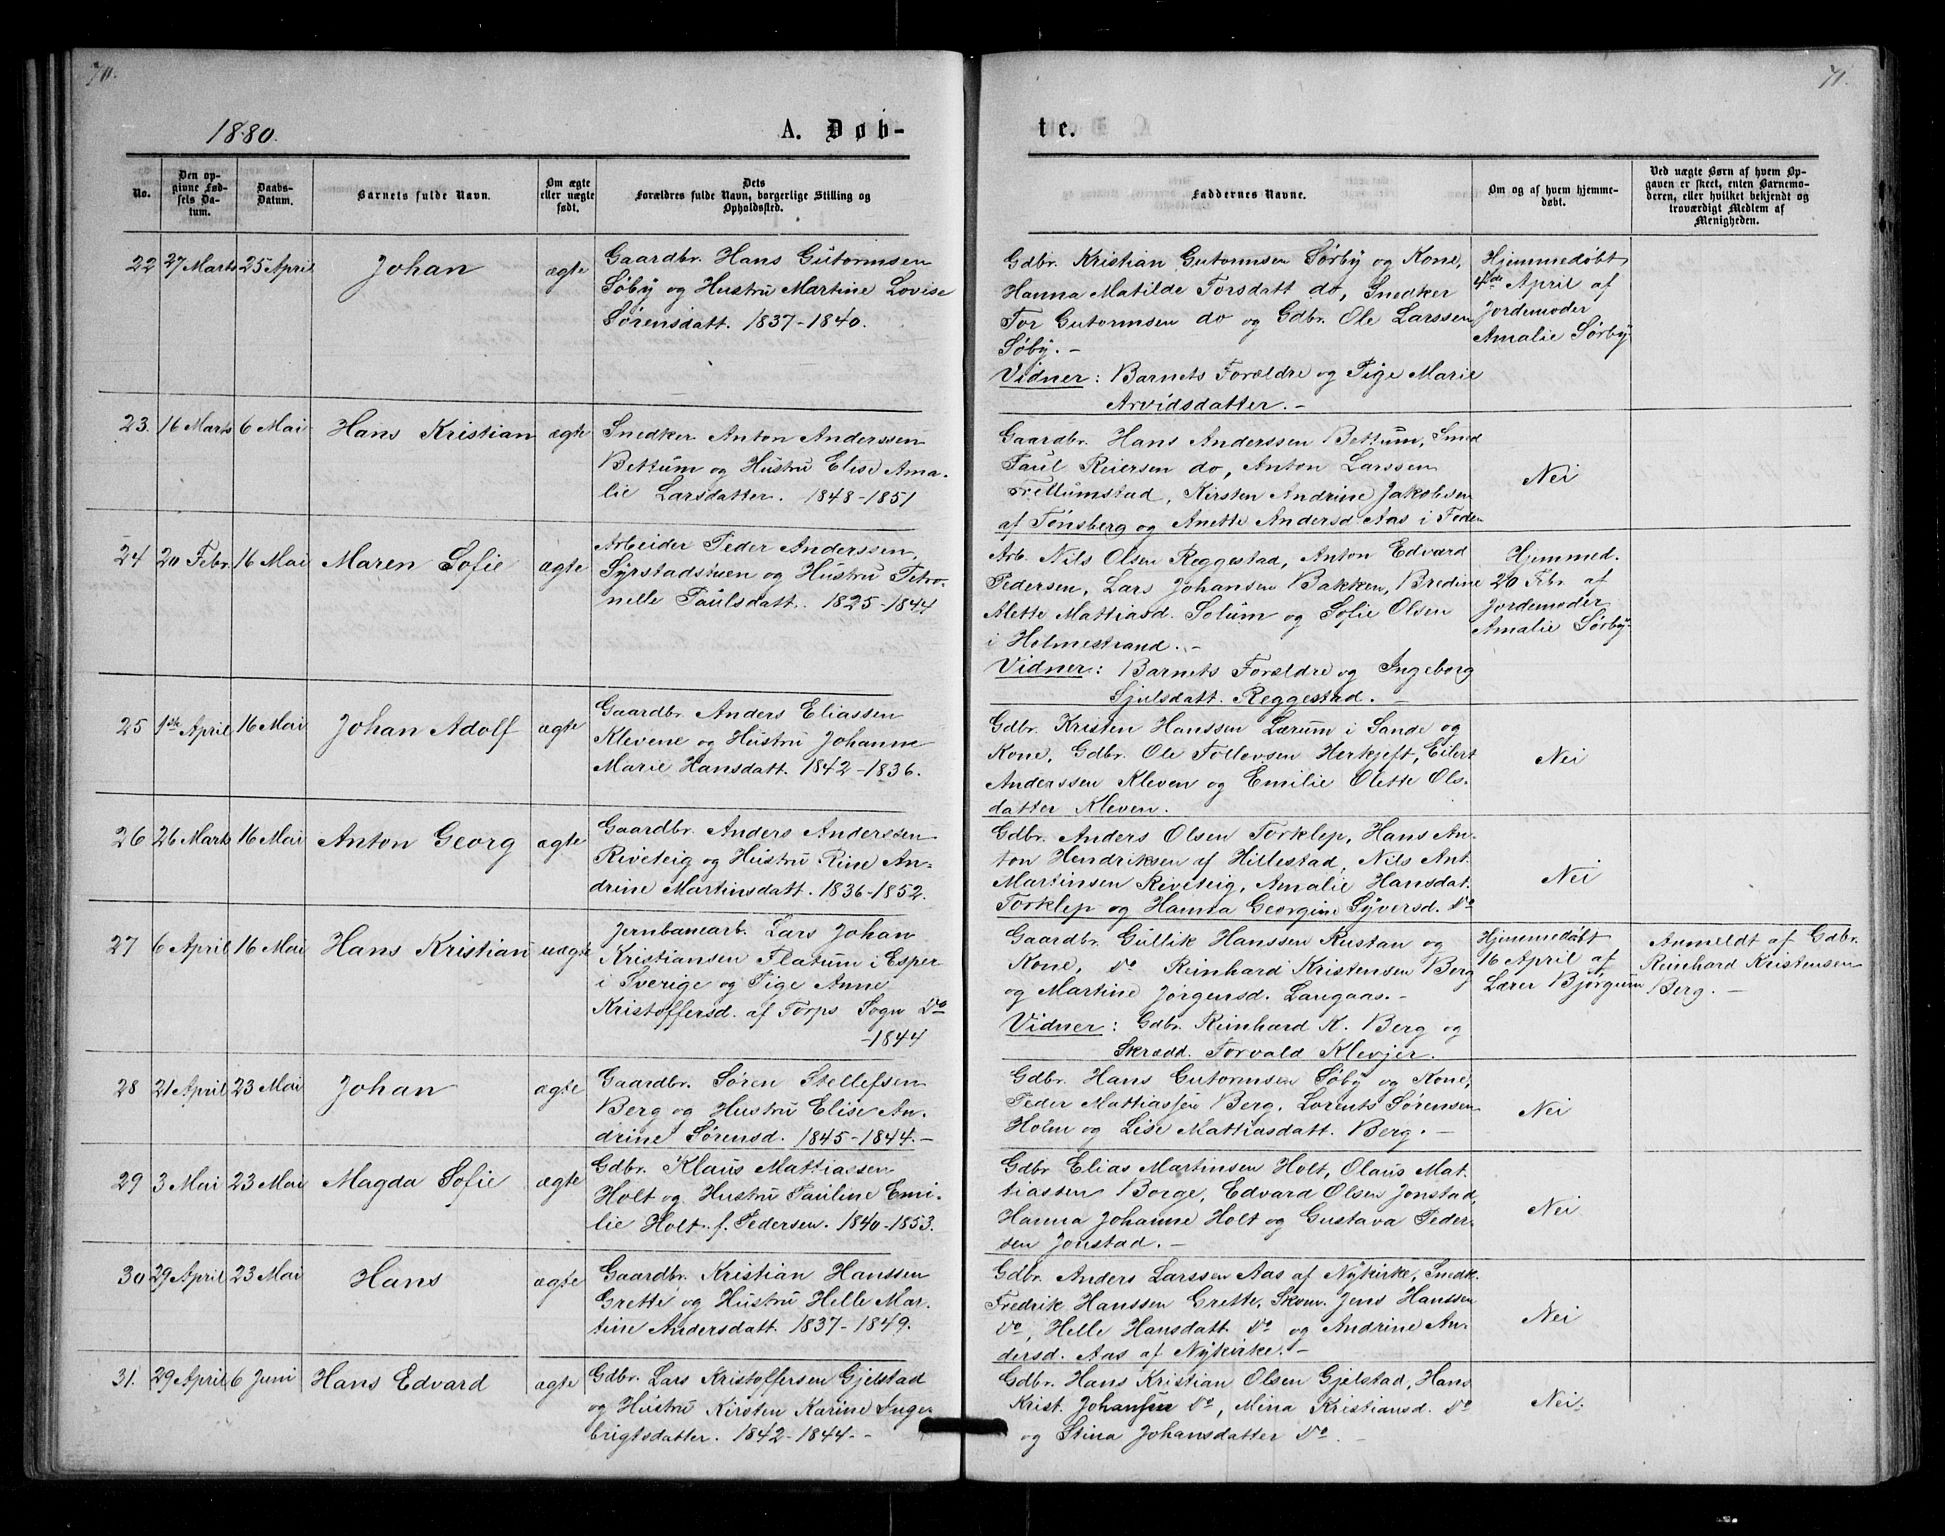 70.
71.
1880.
A. Døb-
te.
No.
Den op-
givne Fød-
sels Da-
tum.
Daabs-
Datum.
Barnets fulde Navn.
Om ægte
eller uægte
født.
Dets
Forældres fulde Navn, borgerlige Stilling og
Opholdssted.
Faddernes Navne.
Om og af hvem hjemme-
døbt.
Ved uægte Børn af hvem Op-
gaven er skeet, enten Barnemo-
deren, eller hvilket bekjendt og
troværdigt Medlem af
Menigheden.
22 27 Marts 25 April Johan ægte
Gaardbr. Hans Gutormsen
Søby og Hustru Martine Lovise
Sørensdatt. 1837-1840.
Gdbr. Kristian Gutormsen Sørby og Kone,
Hanna Matilde Torsdatt do, Snedker
Tor Gutormsen do og Gdbr. Ole Larssen
Søby. -
Vidner: Barnets Forældre og Pige Marie
Arvidsdatter. -
Hjemmedøbt
4de April af
Jordemoder
Amalie Sørby
23. 16 Marts 6 Mai Hans Kristian ægte
Snedker Anton Anderssen
Bettum og Hustru Elise Ama-
lie Larsdatter. 1848-1851
Gaardbr. Hans Anderssen Bettum, Smed
Paul Reiersen do, Anton Larssen
Trettumstad, Kirsten Andrine Jakobsen
af Tønsberg og Anette Andersd. Aas i Foden
Nei
24 20 Febr. 16 Mai Maren Sofie ægte
Arbeider Peder Anderssen
Syrstadstuen og Hustru Petro-
nelle Paulsdatt. 1825-1844
Arb. Nils Olsen Reggestad, Anton Edvard
Pedersen, Lars Johansen Bakken, Bredine
Alette Mattiasd. Solum og Sofie Olsen
i Holmestrand. -
Vidner: Barnets Forældre og Ingeborg
Sjulsdatt. Reggestad. -
Hjemmed.
20 Febr. af
Jordemoder
Amalie Sørby
25 1ste April 16 Mai Johan Adolf ægte
Gaardbr. Anders Eliassen
Klevene og Hustru Johanne
Marie Hansdatt. 1842-1836.
Gdbr. Kristen Hanssen Lærum i Sande og
Kone, Gdbr. Ole Tollevsen Herkjeft, Eilert
Anderssen Kleven og Emilie Olette Ols-
datter Kleven.
Nei
26 26 Marts 16 Mai Anton Georg ægte
Gaardbr. Anders Anderssen
Riveteig og Hustru Rine An-
drine Martinsdatt. 1836-1852.
Gdbr. Anders Olsen Torklep, Hans An-
ton Hendriksen af Hillestad, Nils Ant.
Martinsen Riveteig, Amalie Hansdat.
Torklep og Hanna Georgine Syversd. do
Nei
27 6 April 16 Mai Hans Kristian uægte
Jernbanearb. Lars Johan
Kristiansen Flatum i Esper
i Sverige og Pige Anne
Kristoffersd. af Torps Sogn do
-1844
Gaardbr. Gullik Hanssen Rustan og
Kone, do Reinhard Kristensen Berg
og Martine Jørgensd. Langaas. -
Vidner: Gdbr. Reinhard K. Berg og
Skrædd. Torvald Klevjer.
Hjemmedøbt
16 April af
Lærer Bjørgum
Anmeldt af Gdbr.
Reinhard Kristensen
Berg. -
28 21 April 23 Mai Johan ægte
Gaardbr. Søren Stellefsen
Berg og Hustru Elise An-
drine Sørensd. 1845-1844. -
Gdbr. Hans Gutormsen Søby og Kone,
Peder Mattiassen Berg, Lorents Sørensen
Holm og Lise Mattiasdatt. Berg. -
Nei
29 3 Mai 23 Mai Magda Sofie ægte
Gdbr. Klaus Mattiassen
Holt og Hustru Pauline Emi-
lie Holt f. Pedersen. 1840-1853.
Gdbr Elias Martinsen Holt, Olaus Mat-
tiassen Borge, Edvard Olsen Jonstad,
Hanna Johanne Holt og Gustava Peder-
sen Jonstad. -
Nei
30 29 April 23 Mai Hans ægte
Gaardbr. Kristian Hanssen
Grette og Hustru Helle Mar-
tine Andersdatt. 1837-1849.
Gdbr. Anders Larssen Aas af Nykirke, Snedk.
Fredrik Hanssen Grette, Skom. Jens Hanssen
do, Helle Hansdatt. do og Andrine An-
dersd. Aas af Nykirke. -
Nei
31. 29 April 6 Juni Hans Edvard ægte
Gdbr. Lars Kristoffersen Gjelstad
og Hustru Kirsten Karine Inge-
brigtsdatter. 1842-1844. -
Gdbr. Hans Kristian Olsen Gjelstad, Hans
Krist. Johansen do, Mina Kristiansd. do
og Stina Johansdatter do. -
Nei.